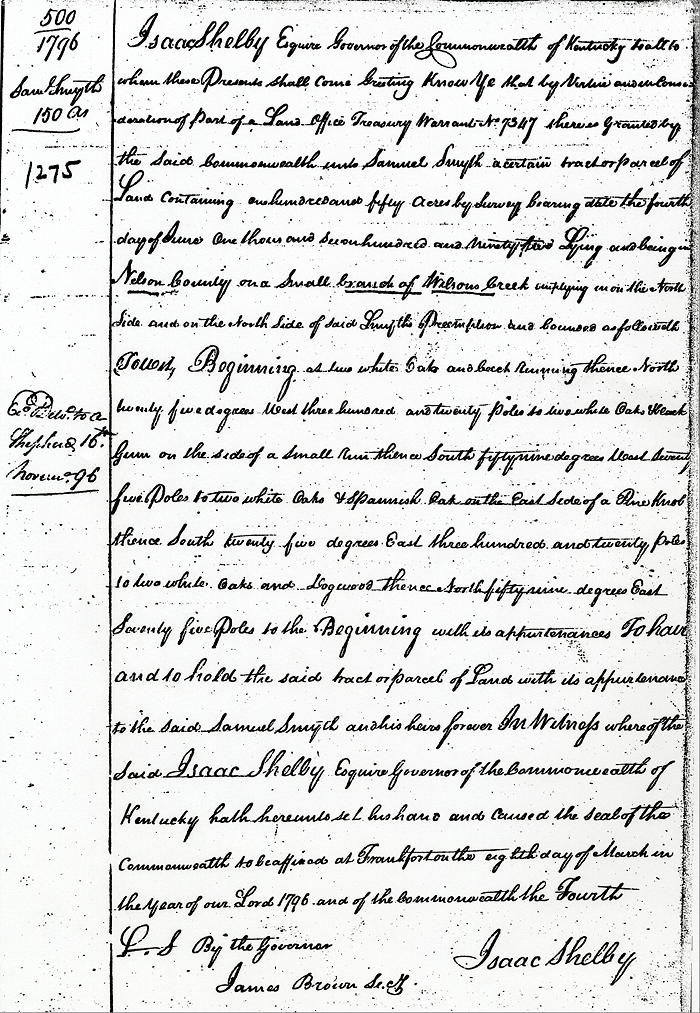 500
1796
Saml Smyth
150 As
1275
Isaac Shelby Esquire Governor of the Commonwealth of Kentucky to all to
whom these Presents shall come Greeting Know Ye that by Virtue and in Consi
deration of Part of a Land Office Treasury Warrant No 7347 thereas Granted by
the Said Commonwealth unto Samuel Smyth a certain tract or parcel of
Land Containing one hundred and fifty Acres by Survey bearing date the fourth
day of June One thousand seven hundred and Ninety five Lying and being in
Nelson County on a Small branch of Wilsons Creek emptying in on the North
Side and on the North Side of said Smyths Preemption and bounded as followeth
Towit, Beginning at two white Oaks and beach Running thence North
twenty five degrees West three hundred and twenty Poles to two white Oaks & black
Gum on the side of a small Run thence South fifty nine degrees West Seventy
five Poles to two white Oaks & Spannish Oak on the East Side of a Pine Knob
thence South twenty five degrees East three hundred and twenty Poles
to two white Oaks and Dogwood thence North fifty nine degrees East
Seventy five Poles to the Beginning with its appurtenances To have
and to hold the said tract or parcel of Land with its appurtenance
to the said Samuel Smyth and his heirs forever In Witness whereof the
Said Isaac Shelby Esquire Governor of the Commonwealth of
Kentucky hath hereunto set his hand and caused the seal of the
Commonwealth to be affixed at Frankfort on the eighth day of March in
the Year of our Lord 1796 and of the Commonwealth the Fourth
L. S By the Governor
Isaac Shelby
James Brown Sect.
Ex Deld. to A
Shepherd 16th
Novem. 96